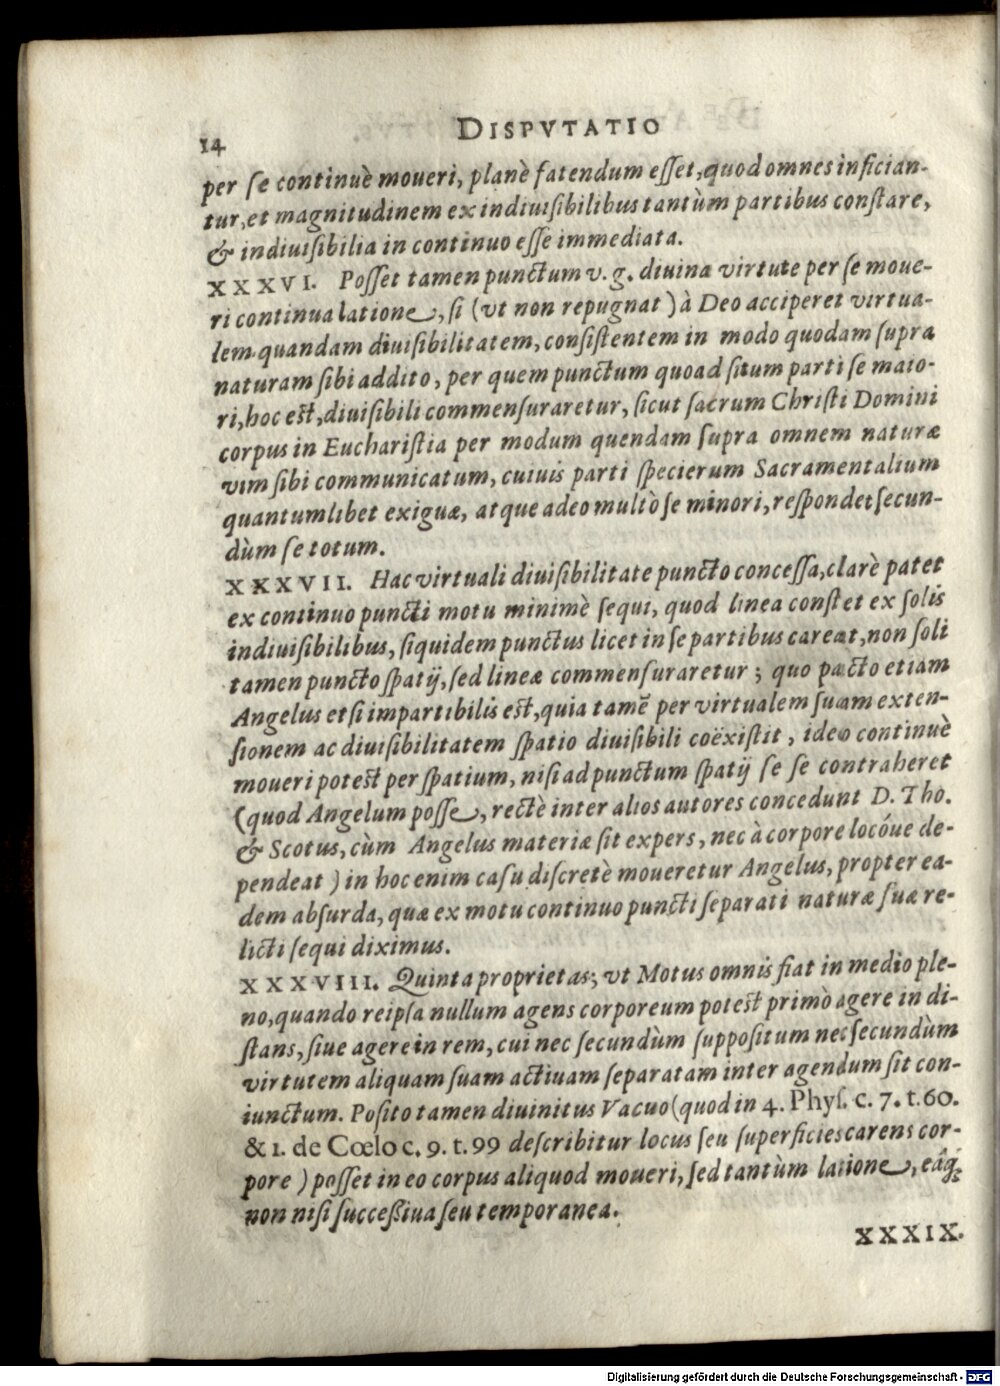 14
DISPVTATIO
per se continuè moueri, planè fatendum esset, quod omnes infician-
tur, et magnitudinem ex indiuisibilibus tantùm partibus constare,
& indiuisibilia in continuo esse immediata.
XXXVI. Posset tamen punctum v.g. diuina virtute per se moue-
ri continua latione, si (vt non repugnat) à Deo acciperet virtua-
lem quandam diuisibilitatem, consistentem in modo quodam supra
naturam sibi addito, per quem punctum quoad situm parti se maio-
ri, hoc est, diuisibili commensuraretur, sicut sacrum Christi Domini
corpus in Eucharistia per modum quendam supra omnem naturæ
vim sibi communicatum, cuiuis parti specierum Sacramentalium
quantumlibet exiguæ, atque adeo multò se minori, respondet secun-
dùm se totum.
XXXVII. Hac virtuali diuisibilitate puncto concessa, clarè patet
ex continuo puncti motu minimè sequi, quod linea constet ex solis
indiuisibilibus, siquidem punctus licet in se partibus careat, non soli
tamen puncto spatij, sed lineæ commensuraretur; quo pacto etiam
Angelus etsi impartibilis est, quia tamē per virtualem suam exten-
sionem ac diuisibilitatem spatio diuisibili coëxistit, ideo continuè
moueri potest per spatium, nisi ad punctum spatij se se contraheret
(quod Angelum posse, rectè inter alios autores concedunt D. Tho.
& Scotus, cùm Angelus materiæ sit expers, nec à corpore locóue de-
pendeat) in hoc enim casu discretè moueretur Angelus, propter ea-
dem absurda, quæ ex motu continuo puncti separati naturæ suæ re-
licti sequi diximus.
XXXVIII. Quinta proprietas; vt Motus omnis fiat in medio ple-
no, quando reipsa nullum agens corporeum potest primò agere in di-
stans, siue agere in rem, cui nec secundùm suppositum nec secundùm
virtutem aliquam suam actiuam separatam inter agendum sit con-
iunctum. Posito tamen diuinitus Vacuo (quod in 4. Phys. c. 7. t. 60.
& 1. de Cœlo c. 9. t. 99 describitur locus seu superficies carens cor-
pore) posset in eo corpus aliquod moueri, sed tantùm latione, eáq;
non nisi successiua seu temporanea.
XXXIX.
Digitalisierung gefördert durch die Deutsche Forschungsgemeinschaft - DFG